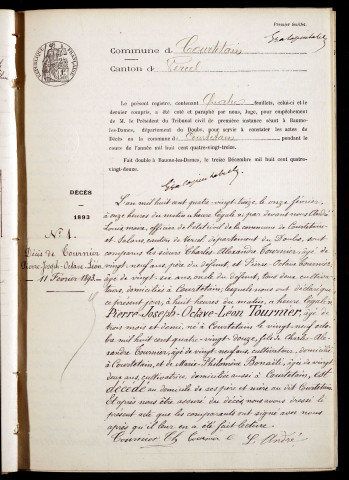 Premier feuillet.
Commune d
Canton d
Le présent registre, contenant quatre feuillets, celui-ci et le
dernier compris, a été coté et paraphé par nous, Juge, pour empêchement
de M. le Président du Tribunal civil de première instance séant à Baume-
les-Dames, département du Doubs, pour servir à constater les actes de
Décès en la commune de Courtetain pendant le
cours de l'année mil huit cent quatre-vingt-treize.
Fait double à Baume-les-Dames, le treize Décembre mil huit cent quatre-
vingt-douze.
DÉCÈS
1893
N° 1.
Décès de Tournier
Pierre-Joseph-Octave-Léon
11 Février 1893
L'an mil huit cent quatre-vingt treize, le onze février,
à onze heures du matin (heure légale) par devant nous André
Louis, maire, officier de l'état civil de la commune de Courtetain-
et-Salans, canton de Vercel, département du Doubs, sont
comparus les sieurs Charles Alexandre Tournier, âgé de
vingt-neuf ans, père du défunt, et Pierre Tournier,
âgé de vingt-six ans, oncle du défunt, tous deux cultiva-
teurs, domiciliés à Courtetain, lesquels nous ont déclaré que
ce présent jour, à huit heures du matin, (heure légale)
Pierre-Joseph-Octave-Léon Tournier, âgé de
trois mois et demi, né à Courtetain le vingt-neuf octo-
bre mil huit cent quatre-vingt-douze, fils de Charles Ale-
xandre Tournier, âgé de vingt-neuf ans, cultivateur, domicilié
à Courtetain, et de Marie-Philomène Bonnet, âgée de vingt
ans, cultivatrice, domiciliée aussi à Courtetain, est
décédé au domicile de ses père et mère au dit Courtetain.
Et après nous être assuré du décès, nous avons dressé le
présent acte que les comparants ont signé avec nous
après qu'il leur en a été fait lecture.
Tournier Ch Tournier L. André